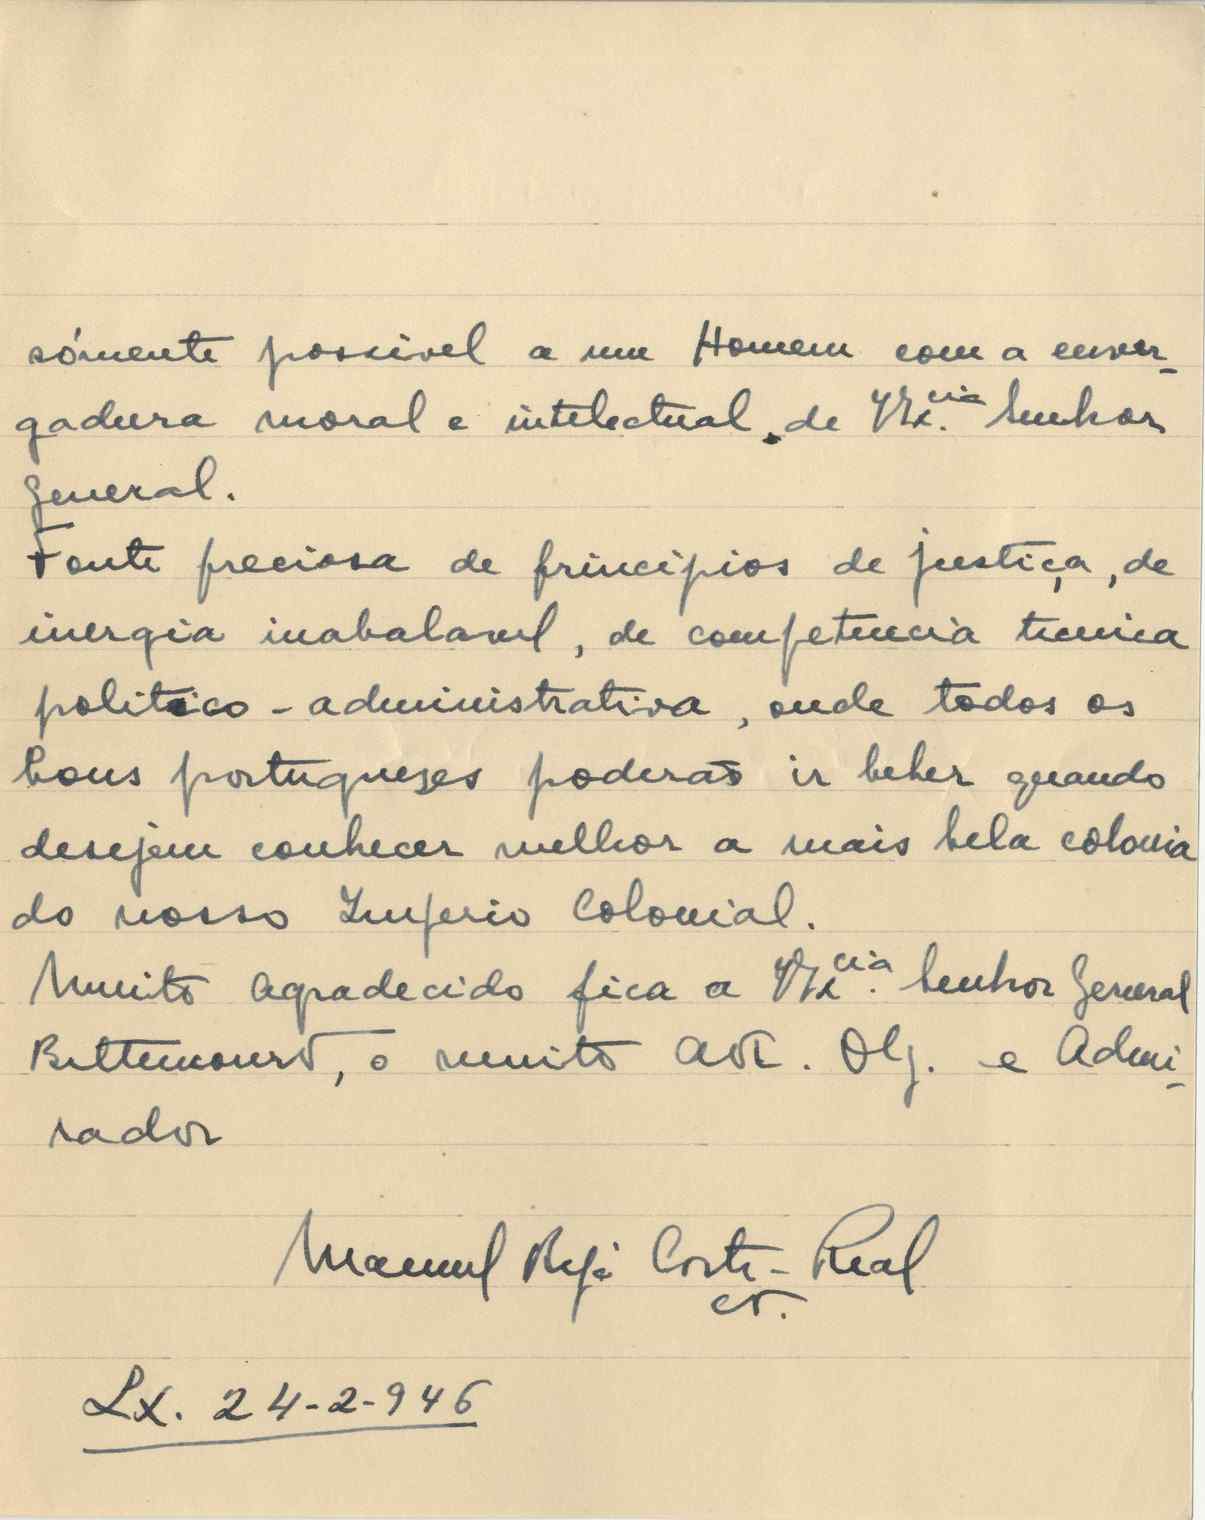 sómente possivel a um Homem com a enver-
gadura moral e intelectual, de V. Ex.cia Senhor
General.
Fonte preciosa de principios de justiça, de
inergia inabalavel, de competencia tecnica
politico-administrativa, onde todos os
bons portuguezes poderão ir beber quando
desejem conhecer melhor a mais bela colonia
do nosso Imperio Colonial.
Muito agradecido fica a V. Ex.cia Senhor General
Bettencourt, o muito Att. Obg. e Admi-
rador
Manuel Corte-Real
Lx. 24-2-946